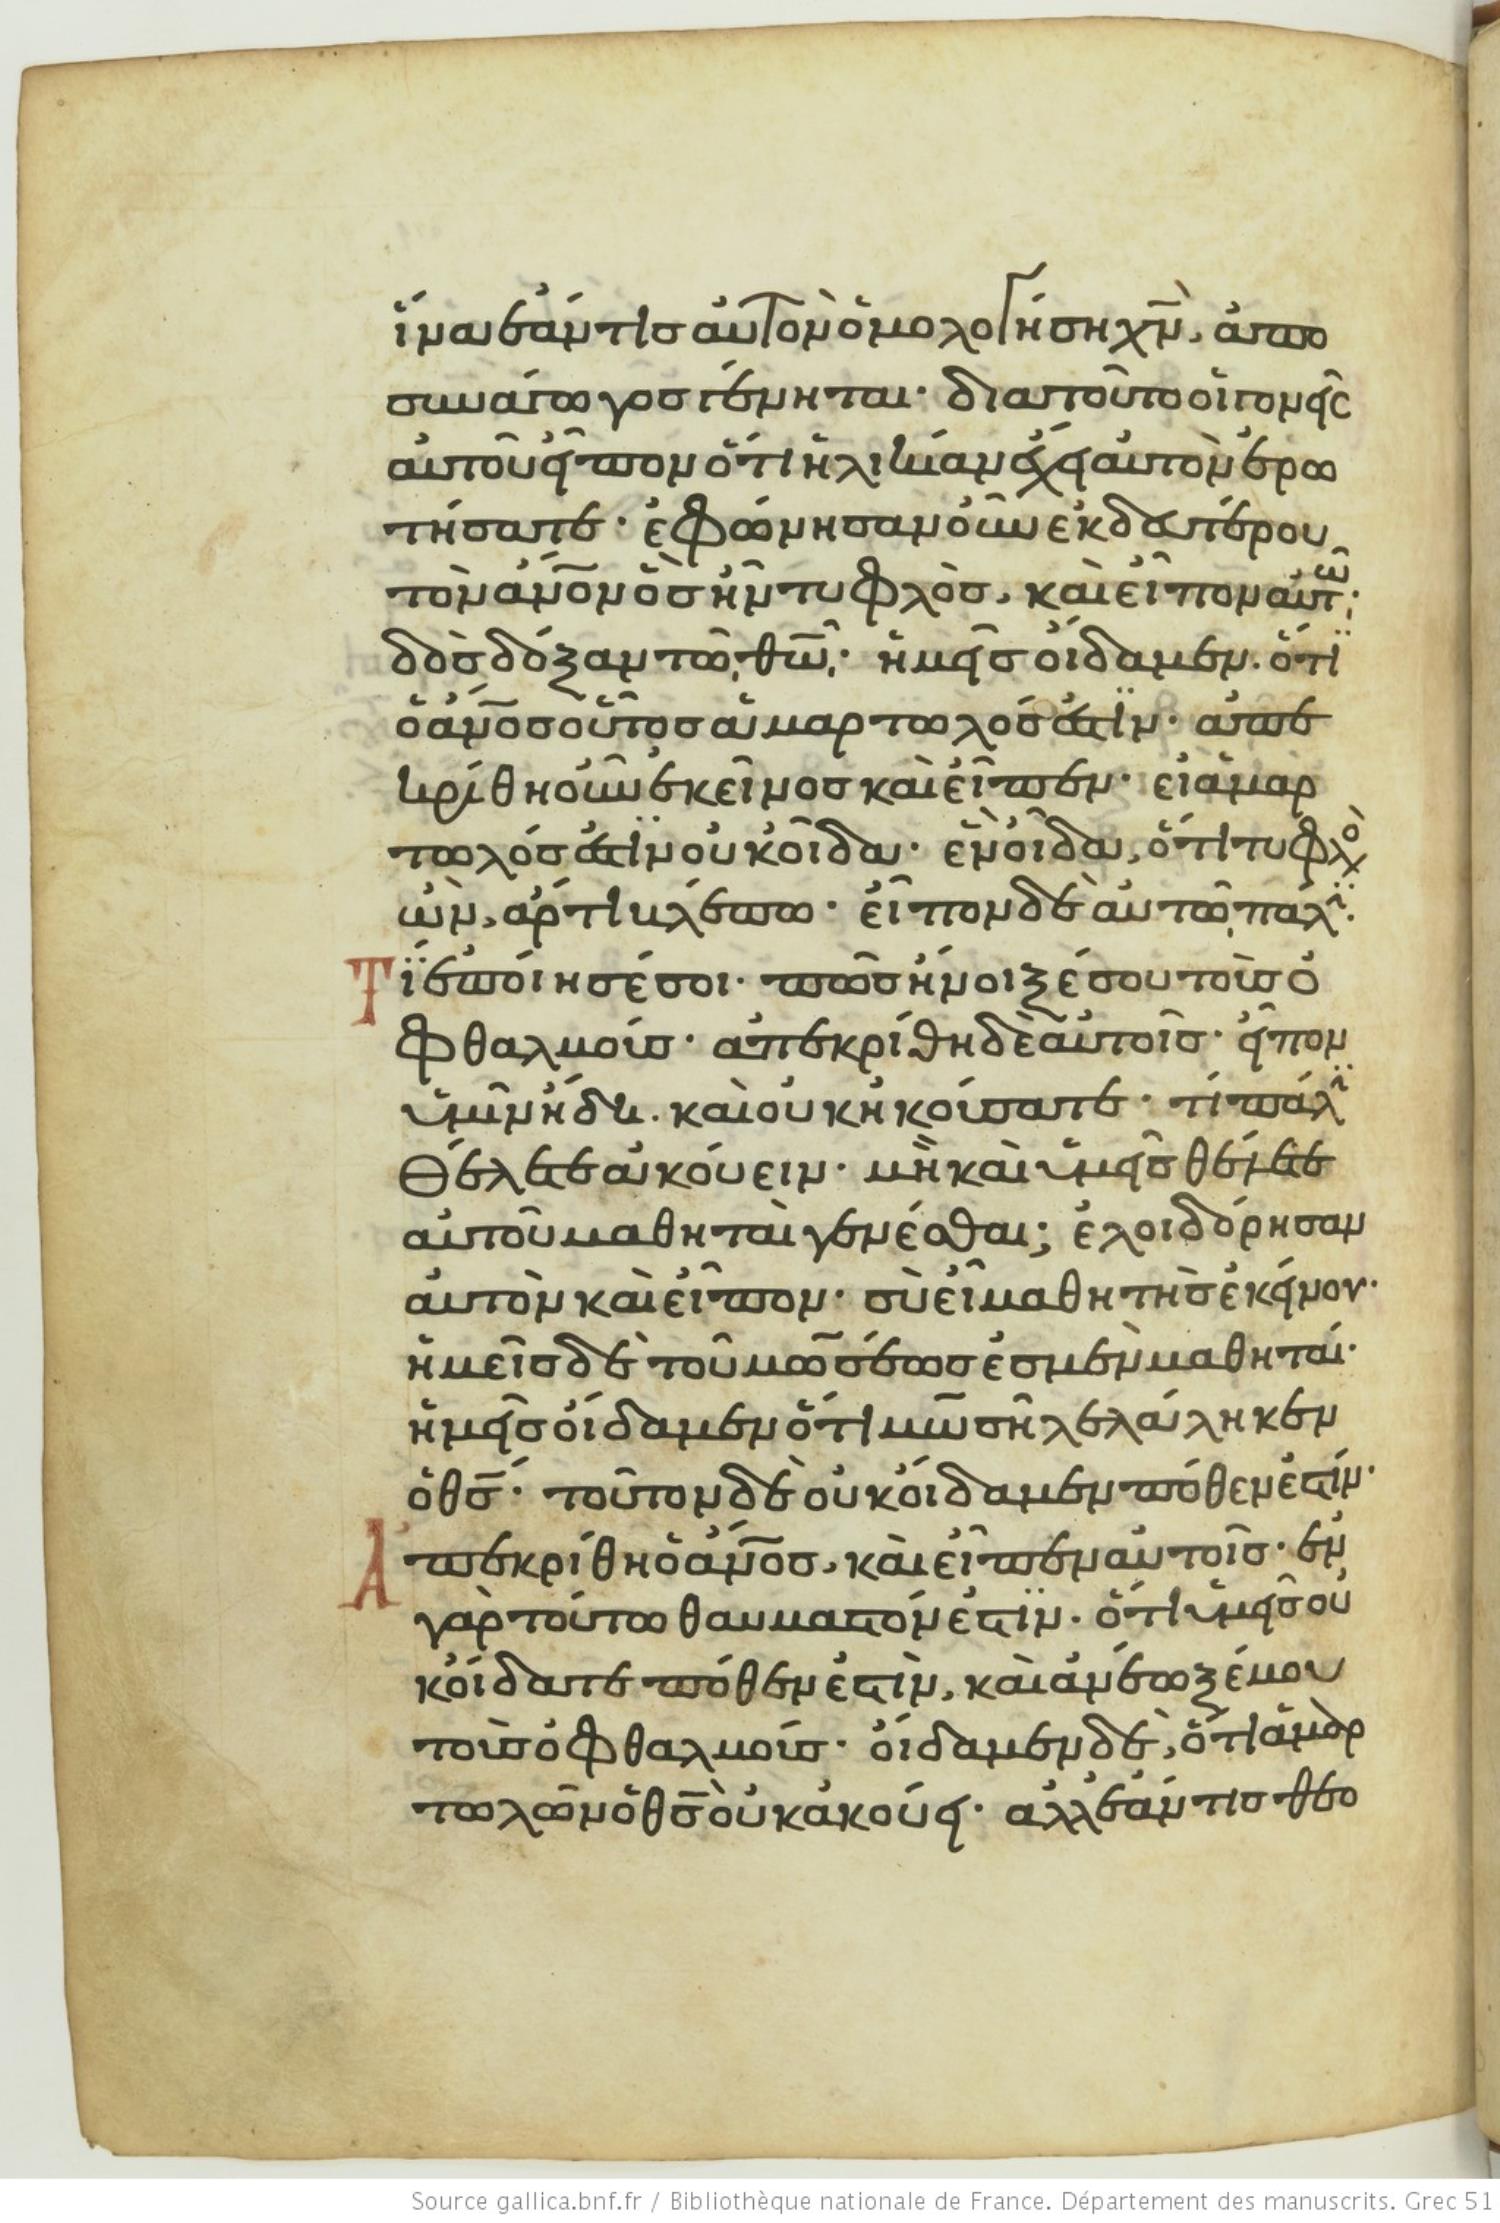 ἵνα ἐάν τισ αὐτὸν ὁμολογήση χν̅, ἀπο
συνάγωγοσ γένηται· διατοῦτο οἱ γονεῖς
αὐτοῦ εἶπον ὅτι ἡλικίαν ἔχει αὐτὸν ἐρω
τήσατε· ἐφώνησαν οὖν ἐκ δευτέρου
τὸν ἄν̅ον ὃσ ἦν τυφλὸσ, καὶ εἶπον αὐτῶ·
δὸσ δόξαν τῶ θω̅· ἡμεῖσ οἴδαμεν. ὅτι
ὁ ἄν̅οσ οὗτοσ ἁμαρτωλόσ ἐστϊν· ἀπε
κρίθη οὖν ἐκεῖνοσ καὶ εἶπεν· εἰ ἁμαρ
τωλόσ ἐστϊν οὐκ οἶδα· ἓν οἶδα, ὅτι τυφλὸ
ὢν, ἄρτι βλέπω· εἶπον δὲ αὐτῶ παλϊ.
Τί ἐποίησέ σοι· πῶσ ἤνοιξέ σου τοὺσ ὀ
φθαλμούσ· ἀπεκρίθη δὲ αὐτοῖσ· εἶπον
ὑμῖν ἤδη. καὶ οὐκ ἠκούσατε· τί πάλϊ
θέλετε ἀκούειν· μὴ καὶ ὑμεῖσ θέλετε
αὐτοῦ μαθηταὶ γενέσθαι; ἐλοιδόρησαν
αὐτὸν καὶ εἶπον· σὺ εἶ μαθητὴσ ἐκείνου·
ἡμεῖσ δὲ τοῦ μωσέωσ ἐσμὲν μαθηταί·
ἡμεῖσ οἴδαμεν ὅτι μωσῆ λελάληκεν
ὁ θσ̅· τοῦτον δὲ οὐκ οἴδαμεν πόθεν ἐστίν·
Ἀπεκρίθη ὁ ἄν̅οσ, καὶ εἶπεν αὐτοῖσ· ἐν
γὰρ τούτω θαυμαστόν ἐστϊν. ὅτι ὑμεῖσ οὐ
κ οἴδατε πόθεν ἐστὶν, καὶ ἀνέωξέ μου
τοὺσ ὀφθαλμούσ· οἴδαμεν δὲ, ὅτι ἁμαρ
τωλῶν ὁ θσ̅ οὐκ ἀκούει· ἀλλ' ἐάν τισ θεο
Source gallica.bnf.fr / Bibliothèque nationale de France. Département des manuscrits. Grec 51